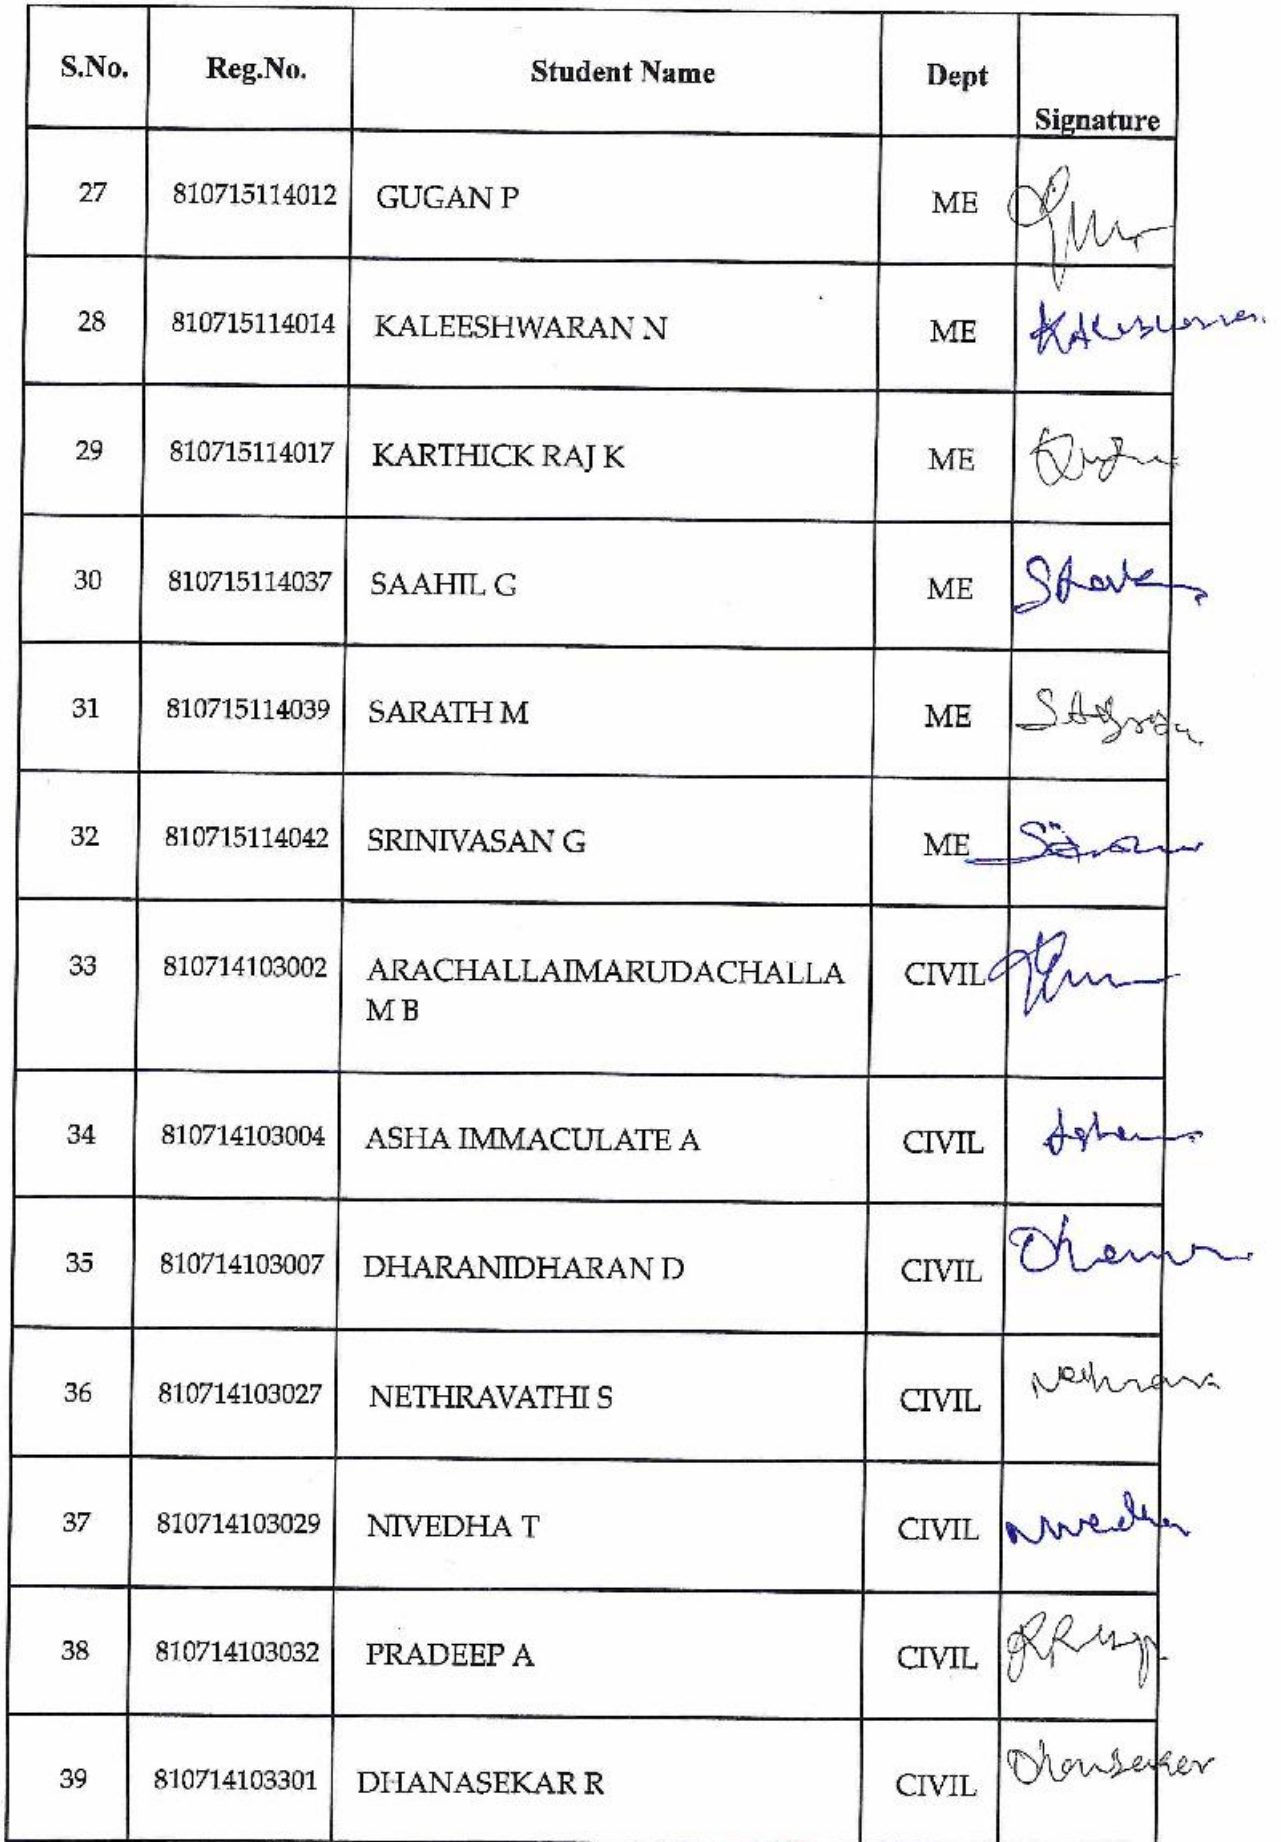 S.No. Reg.No. Student Name Dept Signature
27 810715114012 GUGAN P ME
28 810715114014 KALEESHWARAN N ME
29 810715114017 KARTHICK RAJ K ME
30 810715114037 SAAHIL G ME
31 810715114039 SARATH M ME
32 810715114042 SRINIVASAN G ME
33 810714103002 ARACHALLAIMARUDACHALLA CIVIL
M B
34 810714103004 ASHA IMMACULATE A CIVIL
35 810714103007 DHARANIDHARAN D CIVIL
36 810714103027 NETHRAVATHI S CIVIL
37 810714103029 NIVEDHA T CIVIL Nivedha
38 810714103032 PRADEEP A CIVIL
39 810714103301 DHANASEKAR R CIVIL